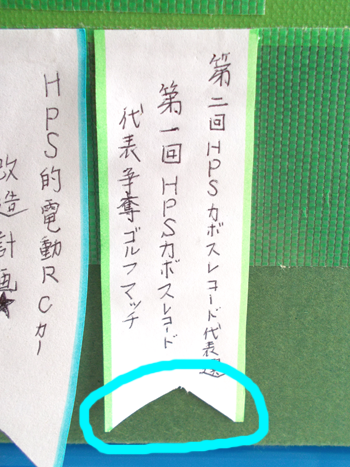 第二回HPSカボスレコード代表選
第一回HPSカボスレコード
代表争奪ゴルフマッチ
HPS的電動RCカー
改造計画★